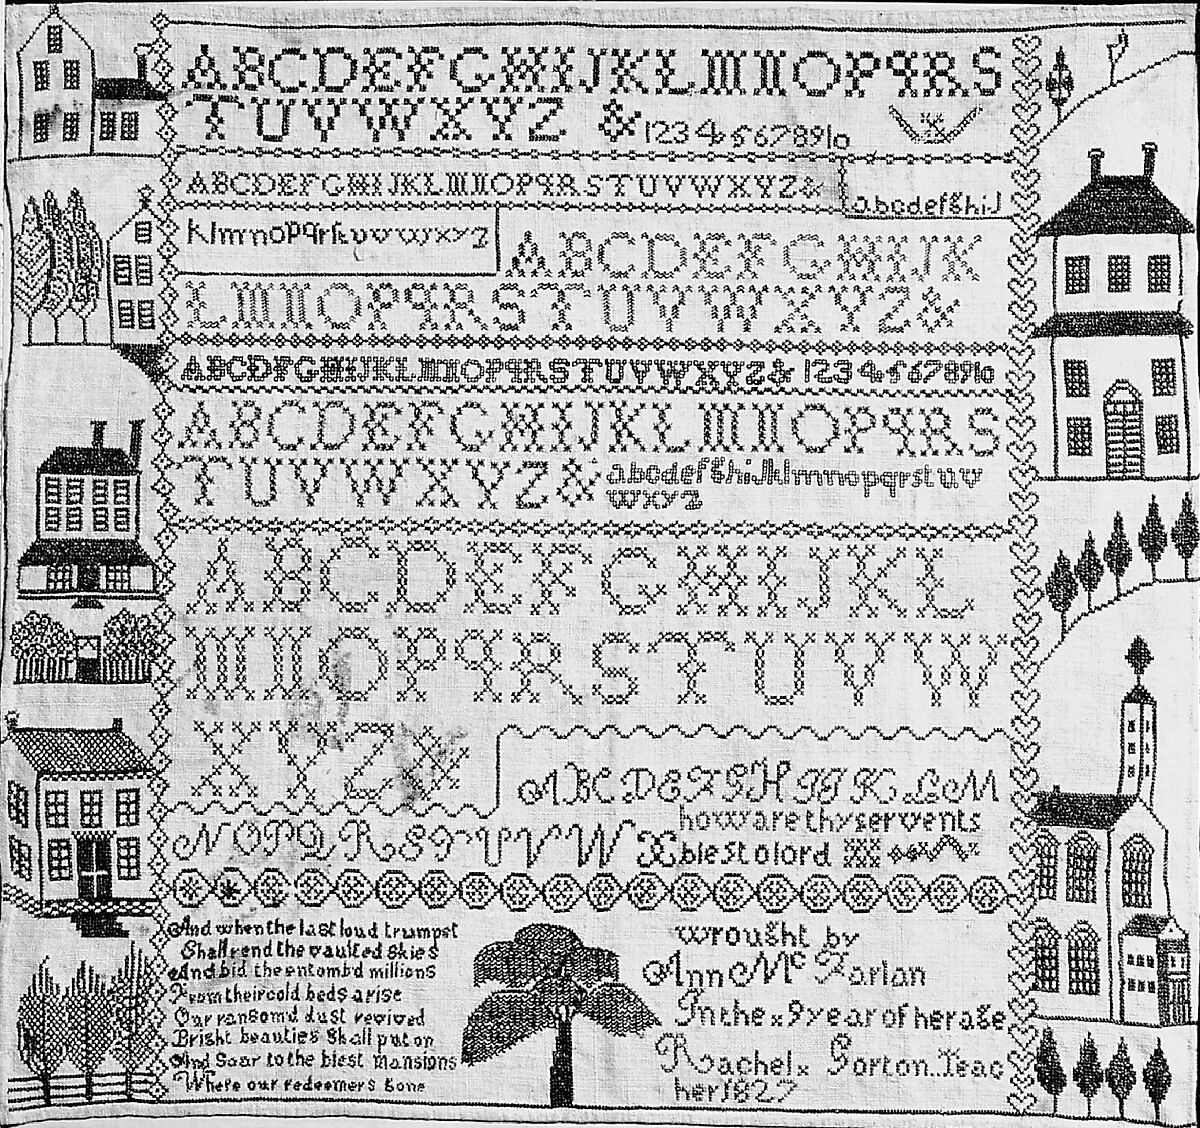 ABCDEFGHIJKLMNOPQRS
TUVWXYZ & 12345678910
ABCDEFGHIJKLMNOPQRSTUVWXYZ&
abcdefghiJ
klmnopqrstuvwxyz
ABCDEFGHIJK
LMNOPQRSTUVWXYZ&
ABCDFGHIJKLMNOPQRSTUVWXYZ& 12345678910
ABCDEFGHIJKLMNOPQRS
TUVWXYZ& abcdefghiJklmnopqrstuv
wxyz
ABCDEFGHIJKL
MNOPQRSTUVW
XYZ&
ABCDEFGHIJKLM
NOPQRSTUVWX
how are thy servents
blest o lord
And when the last loud trumpet
Shall rend the vaulted Skies
And bid the entomb'd millions
From their cold beds arise
Our ransom'd dust revived
Bright beauties Shall put on
And Soar to the blest mansions
Where our redeemers gone
wrought by
Ann Mc Farlan
In the x 9 year of her age
Rachel x Gorton Teac
her 1827